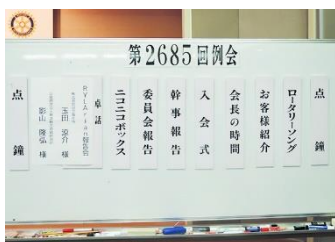 第2685回例会
点鐘
ロータリーソング
お客様紹介
会長の時間
入会式
幹事報告
委員会報告
ニコニコボックス
卓話
RYLArian報告会
玉田 涼介 様
影山 隆弘 様
点鐘